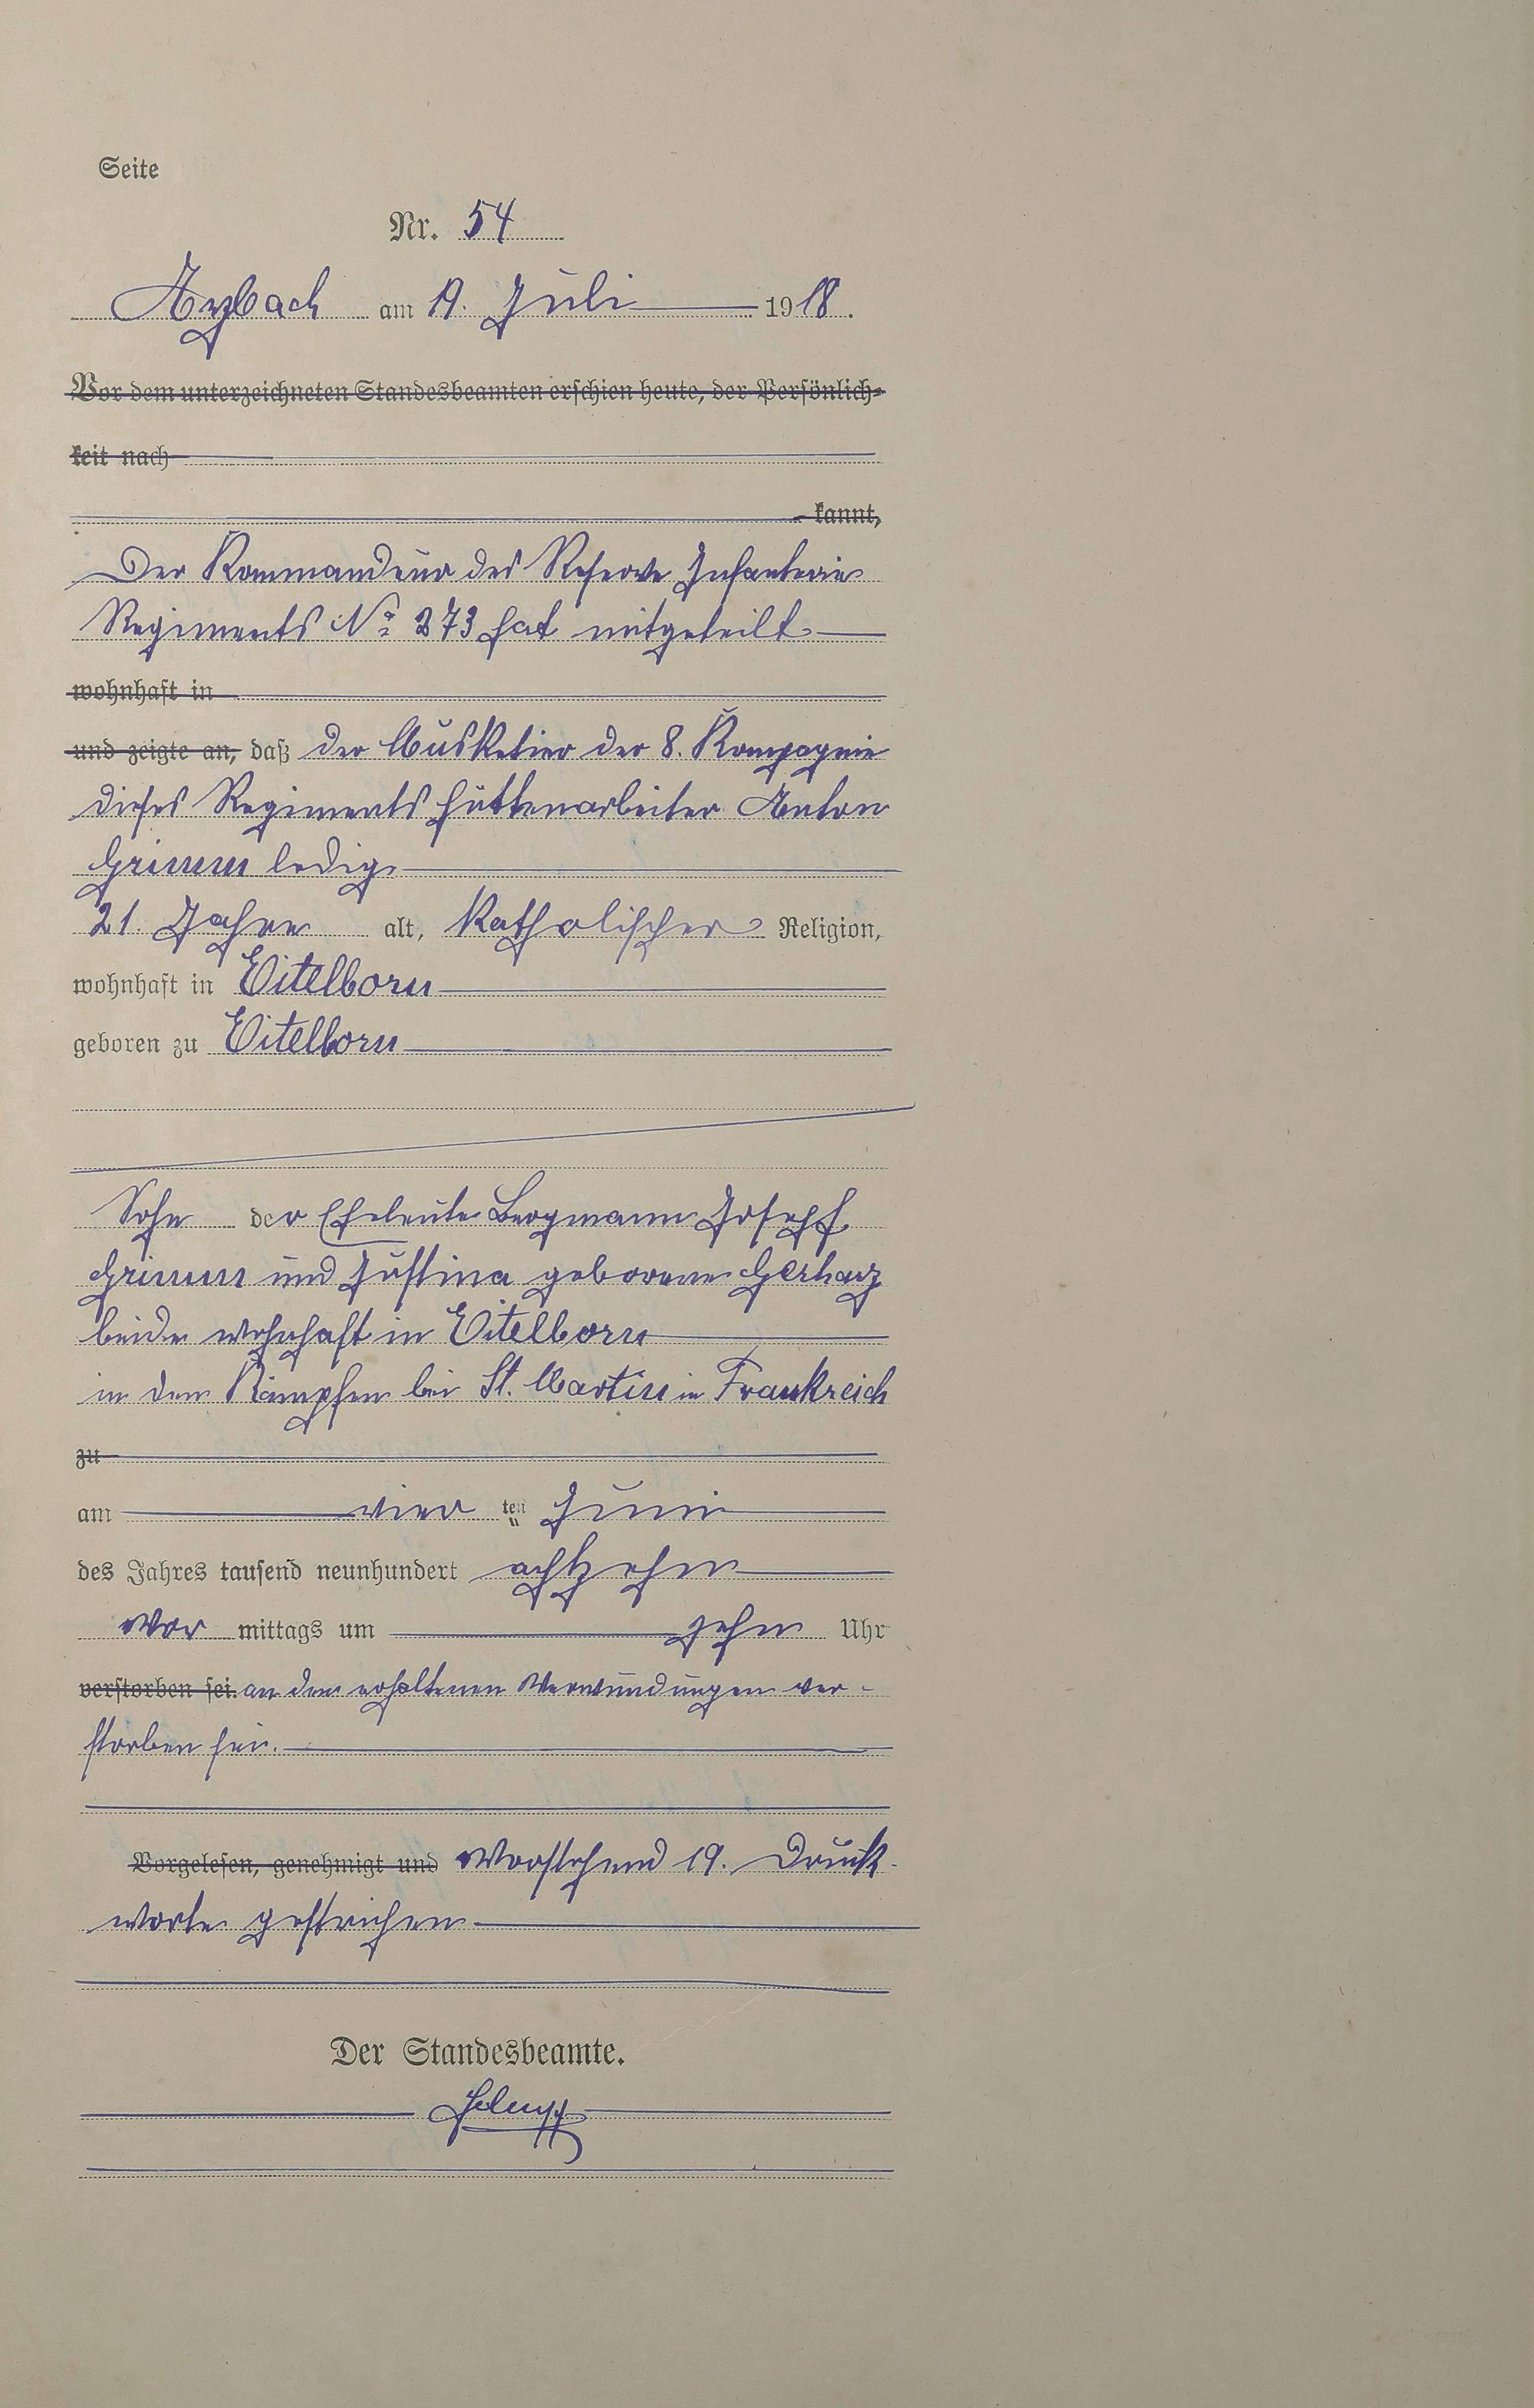 Seite
Nr. 54
Arzbach am 19. Juli 1918.
Vor dem unterzeichneten Standesbeamten erschien heute, der Persönlich-
keit nach
kannt,
Der Kommandeur des Reserve Infanterie
Regiments No 273 hat mitgeteilt
wohnhaft in
und zeigte an, daß der Musketier der 8. Kompagnie
dieses Regiments Hüttenarbeiter Anton
Grimm ledig
21. Jahre alt, katholischer Religion,
wohnhaft in Eitelborn
geboren zu Eitelborn
Sohn der Eheleute Bergmann Joseph
Grimm und Justina geborene Gerharz
beide wohnhaft in Eitelborn
in den Kämpfen bei St. Martin in Frankreich
zu
am vier ten Juni
des Jahres tausend neunhundert achtzehn
Vor mittags um zehn Uhr
verstorben sei. an den erhaltenen Verwundungen ver-
storben sei.
Vorgelesen, genehmigt und Vorstehend 19. Druck-
worte gestrichen
Der Standesbeamte.